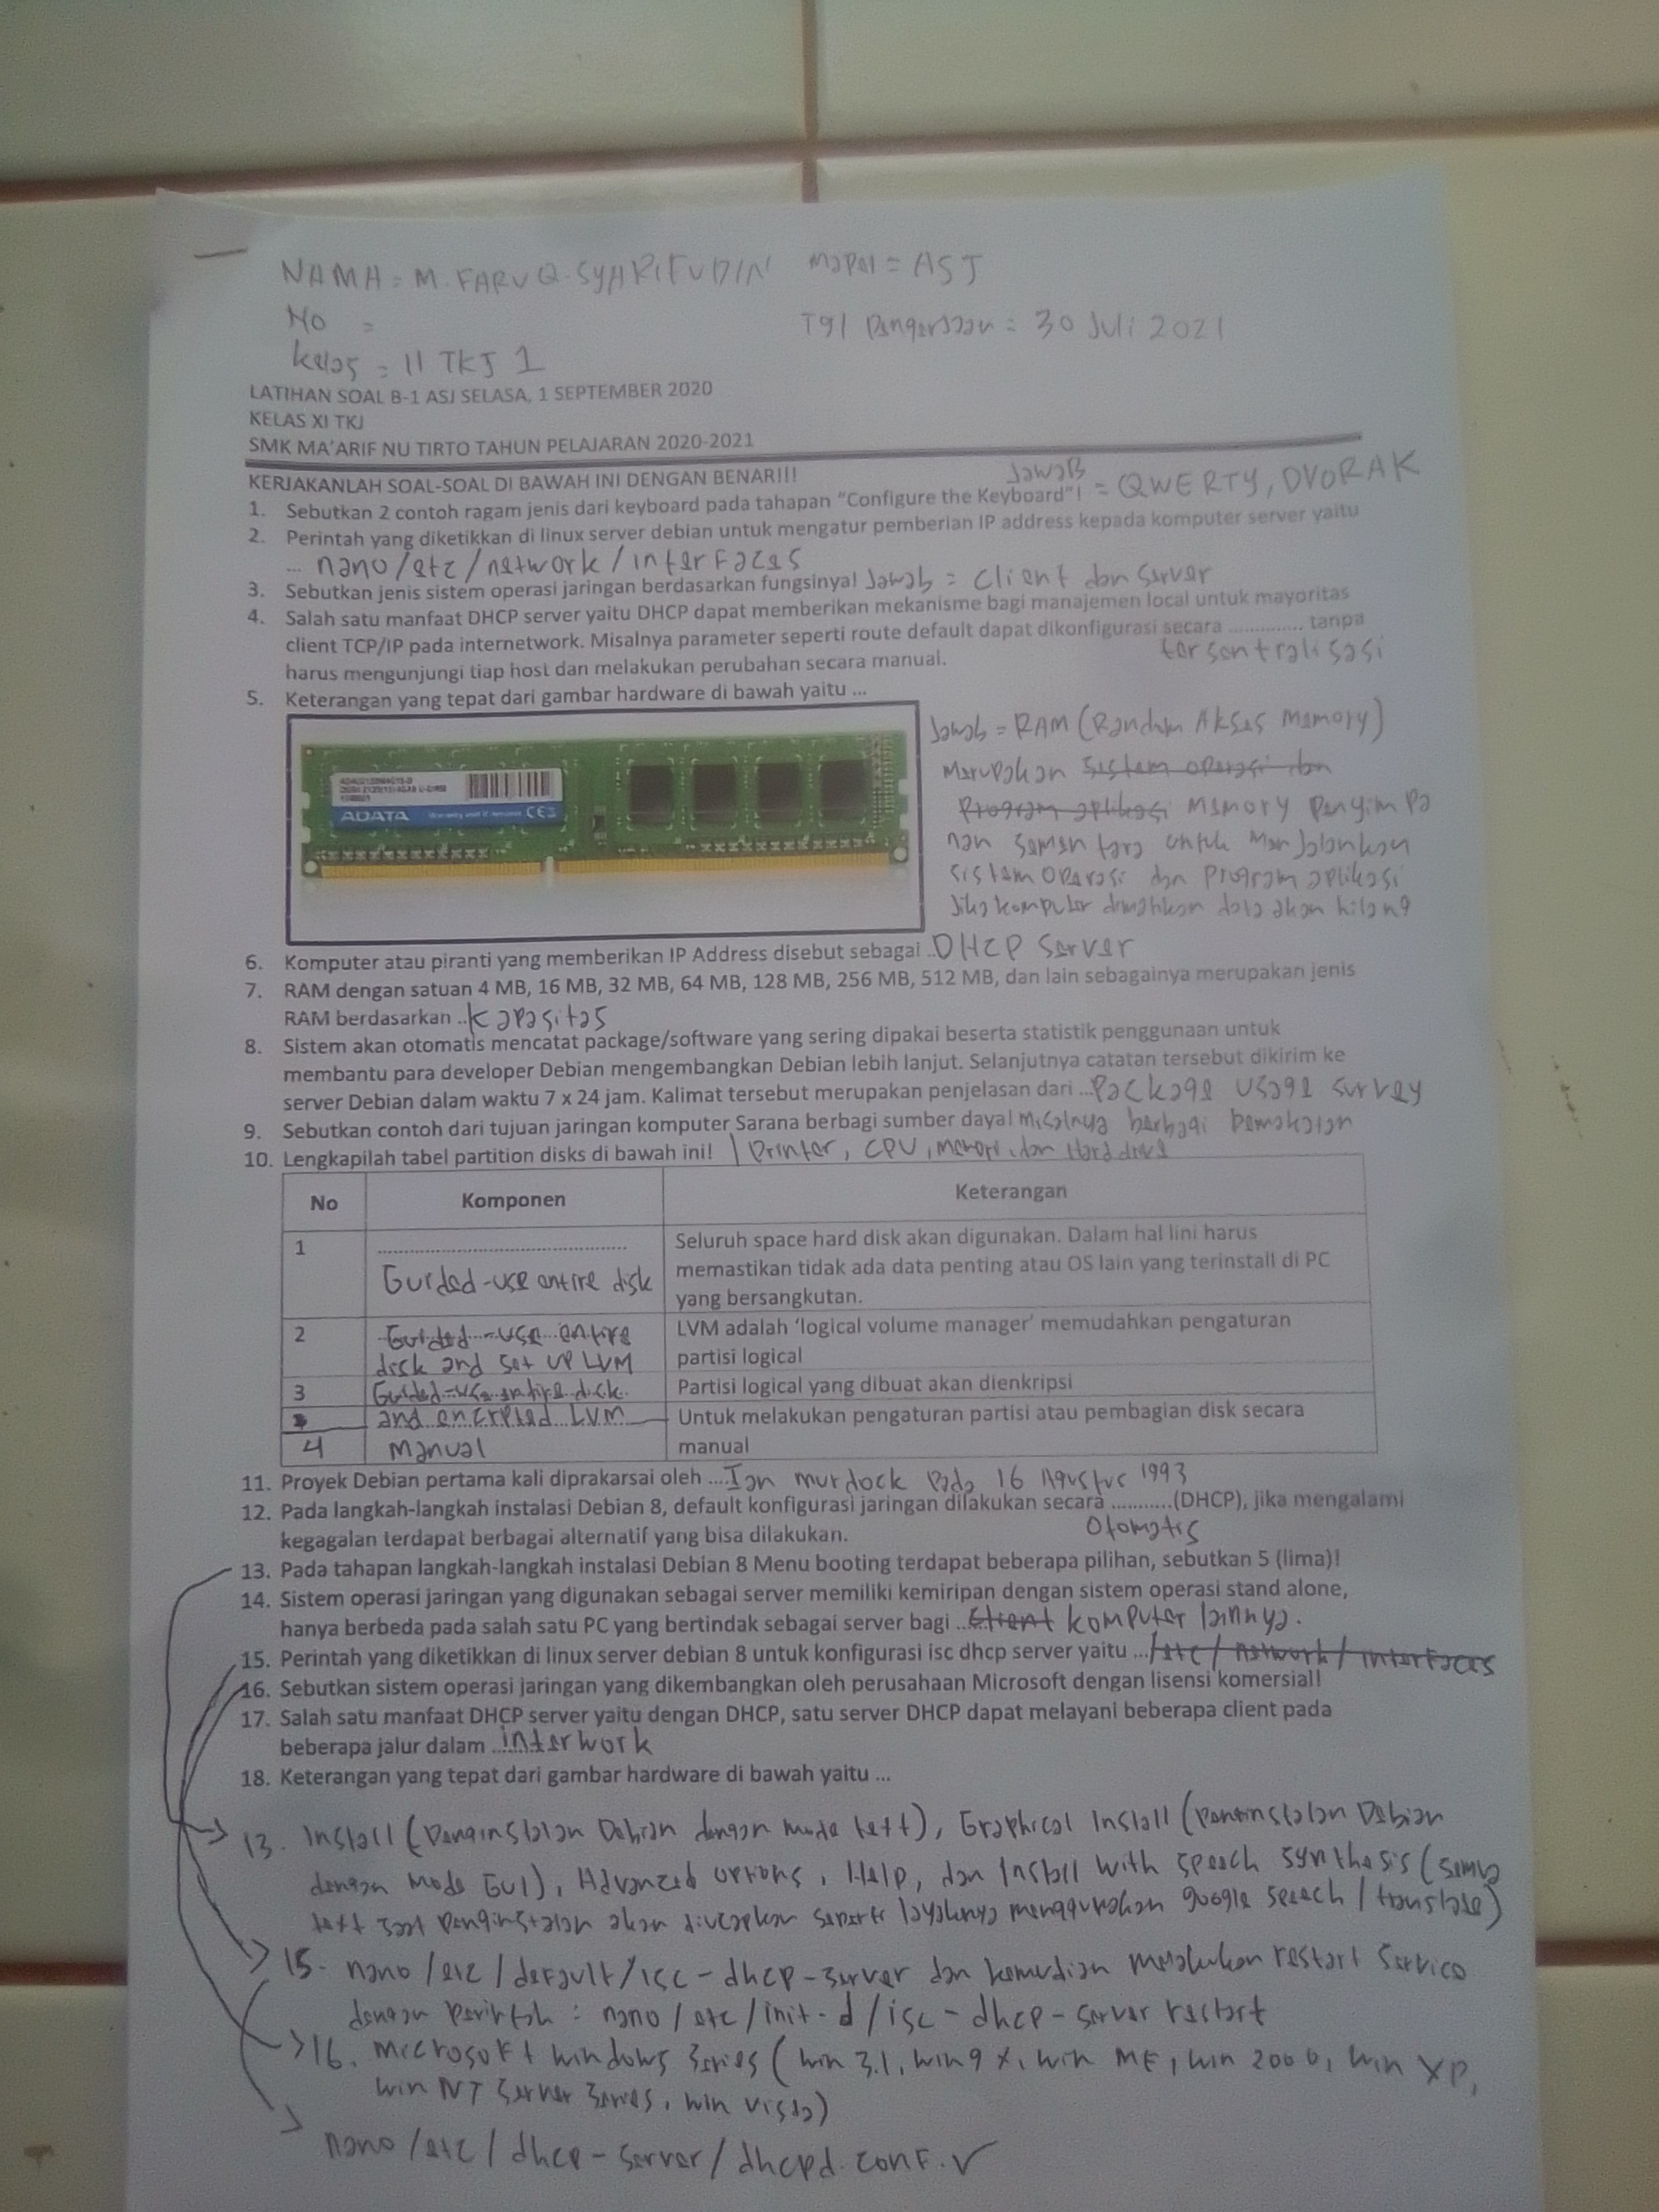 NAMA = M. FARUQ. SYARIFUDIN Mapel = ASJ
No =
Tgl Pengerjaan = 30 Juli 2021
Kelas = 11 TKJ 1
LATIHAN SOAL B-1 ASJ SELASA, 1 SEPTEMBER 2020
KELAS XI TKJ
SMK MA'ARIF NU TIRTO TAHUN PELAJARAN 2020-2021
KERJAKANLAH SOAL-SOAL DI BAWAH INI DENGAN BENAR!!!
1. Sebutkan 2 contoh ragam jenis dari keyboard pada tahapan "Configure the Keyboard"! Jawab = QWERTY, DVORAK
2. Perintah yang diketikkan di linux server debian untuk mengatur pemberian IP address kepada komputer server yaitu
... nano/etc/network/interfaces
3. Sebutkan jenis sistem operasi jaringan berdasarkan fungsinya! Jawab = Client dan Server
4. Salah satu manfaat DHCP server yaitu DHCP dapat memberikan mekanisme bagi manajemen local untuk mayoritas
client TCP/IP pada internetwork. Misalnya parameter seperti route default dapat dikonfigurasi secara ............. tanpa
tersentralisasi
harus mengunjungi tiap host dan melakukan perubahan secara manual.
5. Keterangan yang tepat dari gambar hardware di bawah yaitu ...
ADATA
CE
Jawab = RAM (Random Akses Memory)
Merupakan sistem operasi dan
Program aplikasi Memory Penyimpa
nan sementara untuk Menjalankan
sistem operasi dan Program aplikasi
Jika komputer dimatikan data akan hilang
6. Komputer atau piranti yang memberikan IP Address disebut sebagai ..DHCP Server
7. RAM dengan satuan 4 MB, 16 MB, 32 MB, 64 MB, 128 MB, 256 MB, 512 MB, dan lain sebagainya merupakan jenis
RAM berdasarkan ..Kapasitas
8. Sistem akan otomatis mencatat package/software yang sering dipakai beserta statistik penggunaan untuk
membantu para developer Debian mengembangkan Debian lebih lanjut. Selanjutnya catatan tersebut dikirim ke
server Debian dalam waktu 7 x 24 jam. Kalimat tersebut merupakan penjelasan dari ...Package usage survey
9. Sebutkan contoh dari tujuan jaringan komputer Sarana berbagi sumber daya! Misalnya berbagi pemakaian
Printer, CPU, memori, dan Hard drive
10. Lengkapilah tabel partition disks di bawah ini!
No Komponen Keterangan
1 ......................................... Seluruh space hard disk akan digunakan. Dalam hal lini harus
Guided-use entire disk memastikan tidak ada data penting atau OS lain yang terinstall di PC
yang bersangkutan.
2 Guided - use entire LVM adalah 'logical volume manager' memudahkan pengaturan
disk and set up LVM partisi logical
3 Guided-use entire disk Partisi logical yang dibuat akan dienkripsi
and encrpted LVM Untuk melakukan pengaturan partisi atau pembagian disk secara
4 manual manual
11. Proyek Debian pertama kali diprakarsai oleh ....Ian murdock Pada 16 Agustus 1993
12. Pada langkah-langkah instalasi Debian 8, default konfigurasi jaringan dilakukan secara ...........(DHCP), jika mengalami
Otomatis
kegagalan terdapat berbagai alternatif yang bisa dilakukan.
13. Pada tahapan langkah-langkah instalasi Debian 8 Menu booting terdapat beberapa pilihan, sebutkan 5 (lima)!
14. Sistem operasi jaringan yang digunakan sebagai server memiliki kemiripan dengan sistem operasi stand alone,
hanya berbeda pada salah satu PC yang bertindak sebagai server bagi ...Client komputer lainnya.
15. Perintah yang diketikkan di linux server debian 8 untuk konfigurasi isc dhcp server yaitu .../etc/network/interfaces
16. Sebutkan sistem operasi jaringan yang dikembangkan oleh perusahaan Microsoft dengan lisensi komersial!
17. Salah satu manfaat DHCP server yaitu dengan DHCP, satu server DHCP dapat melayani beberapa client pada
beberapa jalur dalam ...interwork
18. Keterangan yang tepat dari gambar hardware di bawah yaitu ...
13. Install (Penginstalan Debian dengan mode text), Graphical Install (Penginstalan Debian
dengan mode GUI), Advanced options, Help, dan Install with speech synthesis (semua
text saat penginstalan akan diucapkan seperti layaknya menggunakan google speech / translate)
15. nano/etc/default/isc-dhcp-server dan kemudian melakukan restart Service
dengan perintah : nano/etc/init-d/isc-dhcp-server restart
16. Microsoft windows Series (win 3.1, win 9 x, win ME, win 2000, win XP,
win NT Server Series, win vista)
nano/etc/dhcp-server/dhcpd.conf. ✓